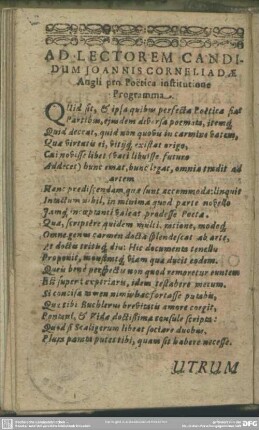 AD LECTOREM CANDI-
DUM JOANNIS CORNELIADÆ
Angli pro Poëtica institutione
Programma.
QUid sit, & ipsa quibus perfecta Poëtica fiat
Partibus, ejusdem diversa poemata, itemq́;
Quid deceat, quid non quobus in carmine vatem,
Quæ virtutis ei, vitijq́; existat origo,
Cui nobisse libet (vati libuisse futuro
Addecet) hunc emat, hunc legat, omnia tradit ad
artem
Hanc prædiscendam quæ sunt accommoda: linquit
Intactum nihil, in minima quod parte novello
Jamq́; incoeptanti valeat prodesse Poëta.
Qua, scripsere quidem multi, ratione, modoq́;
Omne genus carmen doctæ splendescat ab arte,
Et doctus evitisq́; diu: Hic documenta tenello
Proponit, monstratq́; viam qua ducit eodem.
Quem bene perspectis non quod remoretur euntem
Elisuperi experiaris, idem testabere mecum.
Si concisa non nimiubac fortasse putabis,
Quæ tibi Buchlerus brevitatis amore coegit,
Pontani, & Vidæ doctissima consule scripta:
Quod si Scaligerum libeat sociare duobus,
Plura parum putes tibi, quam sit habere necesse.
UTRUM
DFG